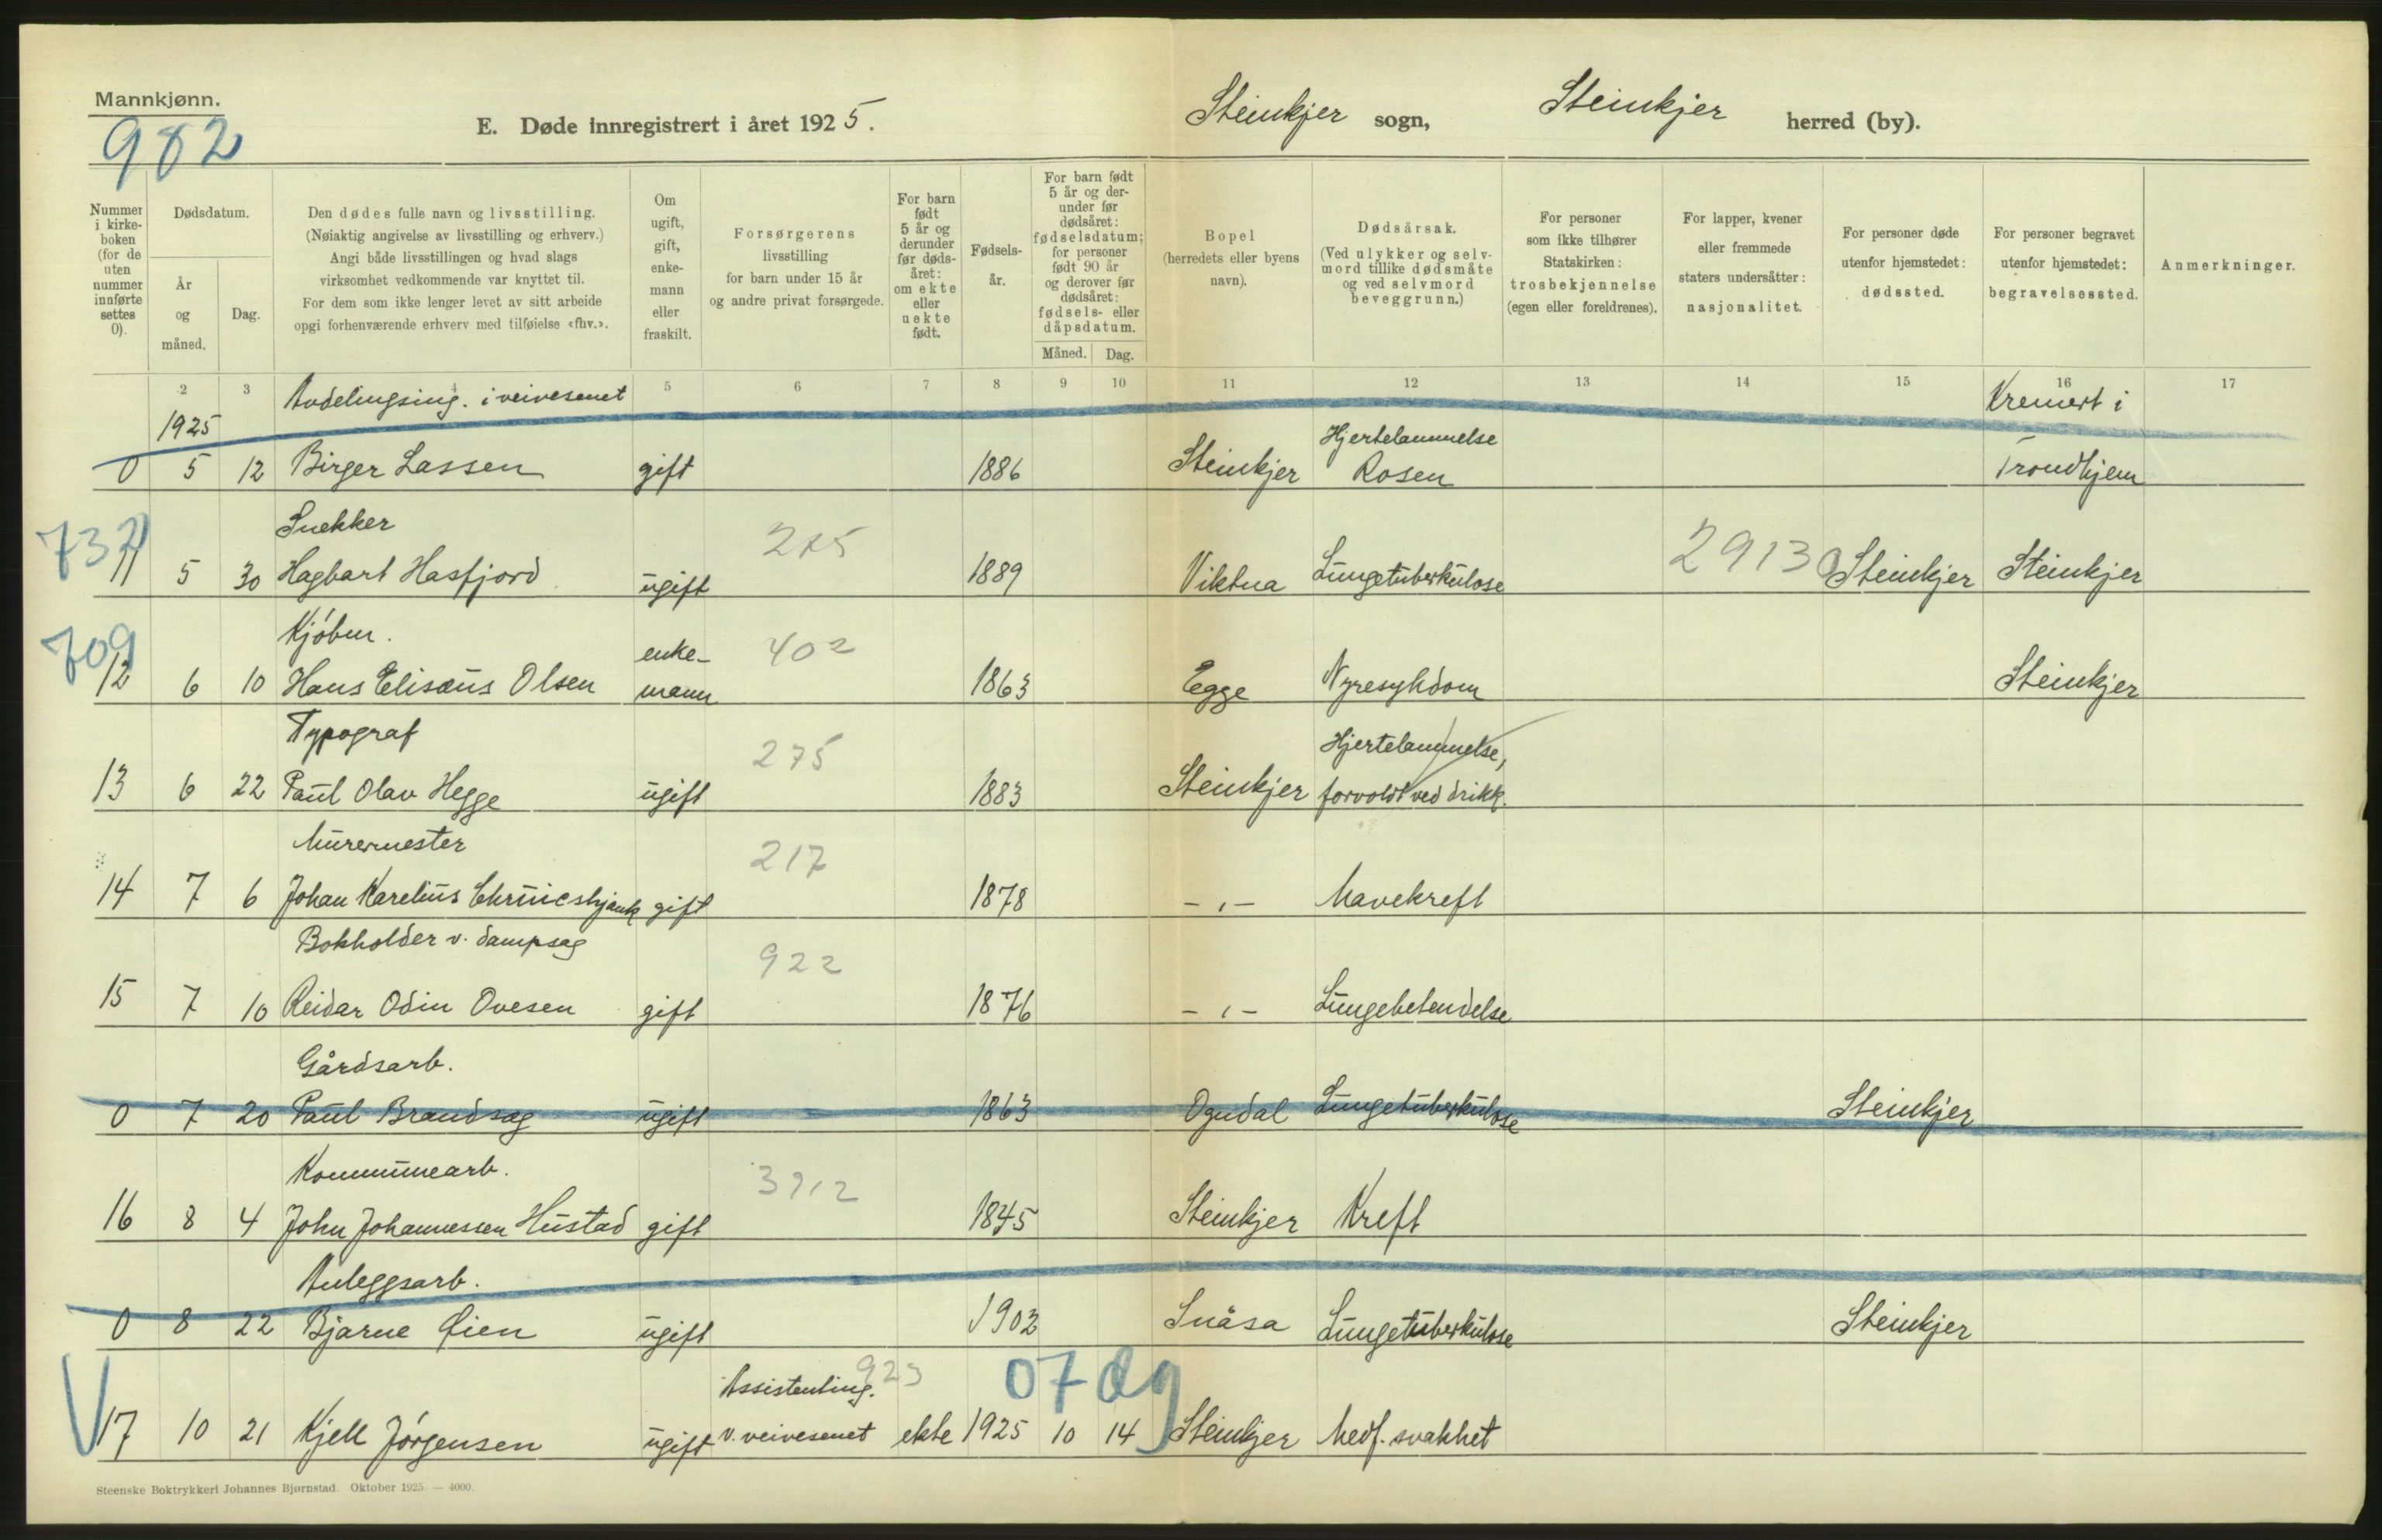 Mannkjønn.
982
E. Døde innregistrert i året 1925.
Steinkjer sogn,
Steinkjer herred (by).
Nummer i kirke- boken (for de uten nummer innførte settes 0).
Dødsdatum.
År og måned.
Dag.
Den dødes fulle navn og livsstilling.
(Nøiaktig angivelse av livsstilling og erhverv.)
Angi både livsstillingen og hvad slags
virksomhet vedkommende var knyttet til.
For dem som ikke lenger levet av sitt arbeide
opgi forhenværende erhverv med tilføielse «fhv.».
Om ugift, gift, enke- mann eller fraskilt.
Forsørgerens livsstilling for barn under 15 år og andre privat forsørgede.
For barn født 5 år og derunder før døds- året: om ekte eller uekte født.
Fødsels- år.
For barn født 5 år og der- under før dødsåret: fødselsdatum; for personer født 90 år og derover før dødsåret: fødsels- eller dåpsdatum.
Måned. Dag.
Bopel (herredets eller byens navn).
Dødsårsak. (Ved ulykker og selv- mord tillike dødsmåte og ved selvmord beveggrunn.)
For personer som ikke tilhører Statskirken: trosbekjennelse (egen eller foreldrenes).
For lapper, kvener eller fremmede staters undersåtter: nasjonalitet.
For personer døde utenfor hjemstedet: dødssted.
For personer begravet utenfor hjemstedet: begravelsessted.
Anmerkninger.
2 3 4 5 6 7 8 9 10 11 12 13 14 15 16 17
1925 Avdelingsing. i veivesenet Hjertelammelse Kremert i
0 5 12 Birger Lassen gift 1886 Steinkjer Rosen Trondhjem
732 Snekker 275 2913
11 5 30 Hagbart Hasfjord ugift 1889 Viktna Lungetuberkulose Steinkjer Steinkjer
709 Kjøbm. enke- 402
12 6 10 Hans Elisæus Olsen mann 1863 Egge Nyresykdom Steinkjer
Typograf 275 Hjertelammelse,
13 6 22 Paul Olav Hegge ugift 1883 Steinkjer forvoldt ved drikk.
Murermester 217
14 7 6 Johan Karelius gift 1878 - " - Mavekreft
Bokholder v. dampsag 922
15 7 10 Reidar Odin Ovesen gift 1876 - " - Lungebetendelse
Gårdsarb.
0 7 20 Paul Brandsæg ugift 1863 Ogndal Lungetuberkulose Steinkjer
Kommunearb. 3912
16 8 4 John Johannessen Hustad gift 1845 Steinkjer Kreft
Anleggsarb.
0 8 22 Bjarne Øien ugift 1902 Snåsa Lungetuberkulose Steinkjer
Assistenting. 923 07 dg
17 10 21 Kjell Jørgensen ugift v. veivesenet ekte 1925 10 14 Steinkjer Medf. svakhet
Steenske Boktrykkeri Johannes Bjørnstad. Oktober 1925. — 4000.